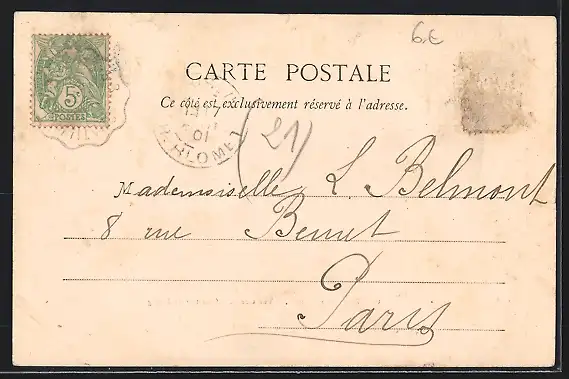 6 €
5c
POSTES
CARTE POSTALE
Ce côté est exclusivement réservé à l'adresse.
(21)
01
Mademoiselle L. Belmont
8 rue
Paris